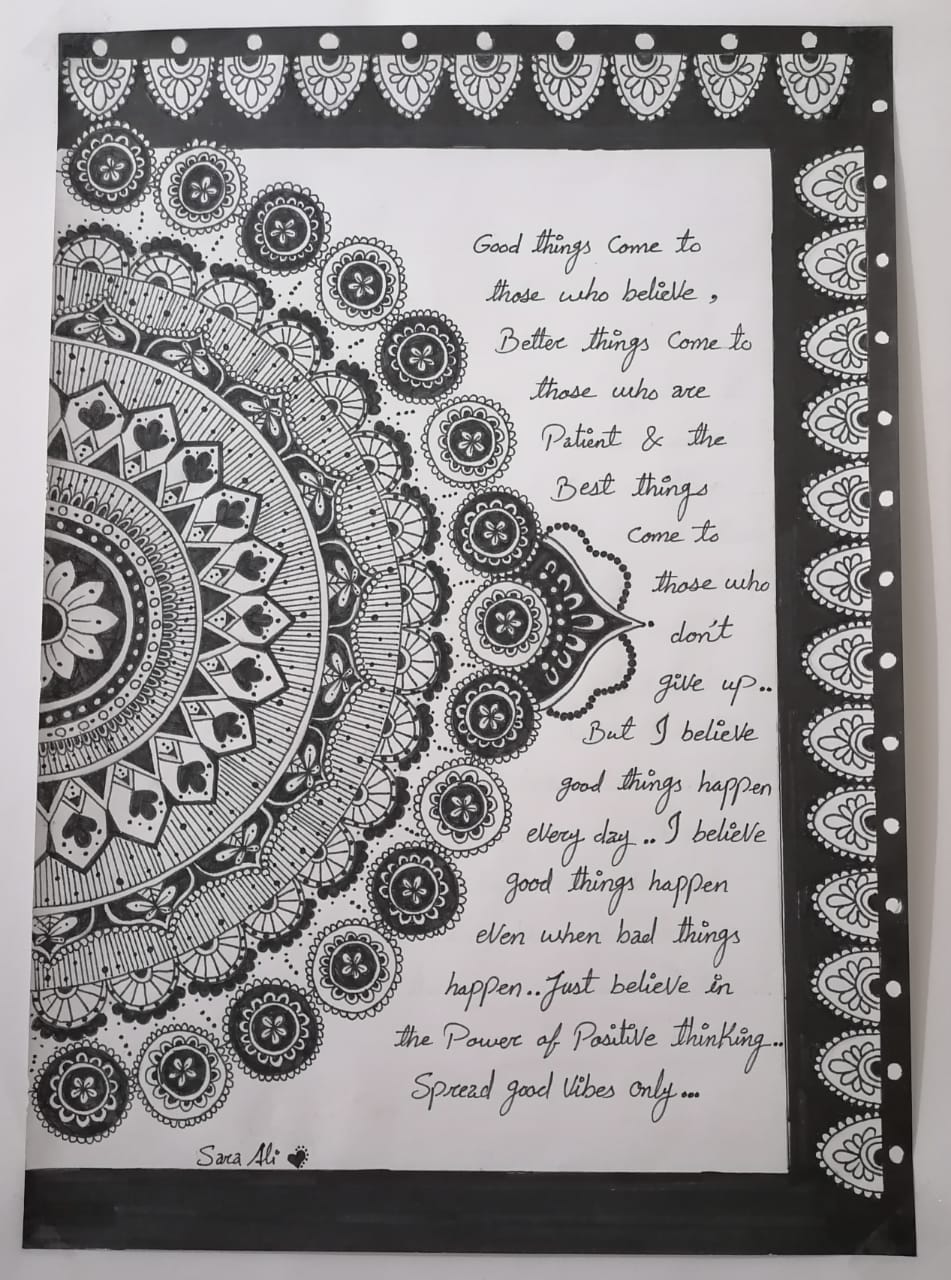 Good things Come to
those who believe,
Better things Come to
those who are
Patient & the
Best things
Come to
those who
don't
give up..
But I believe
good things happen
every day.. I believe
good things happen
even when bad things
happen..Just believe in
the Power of Positive thinking..
Spread good Vibes only...
Sara Ali